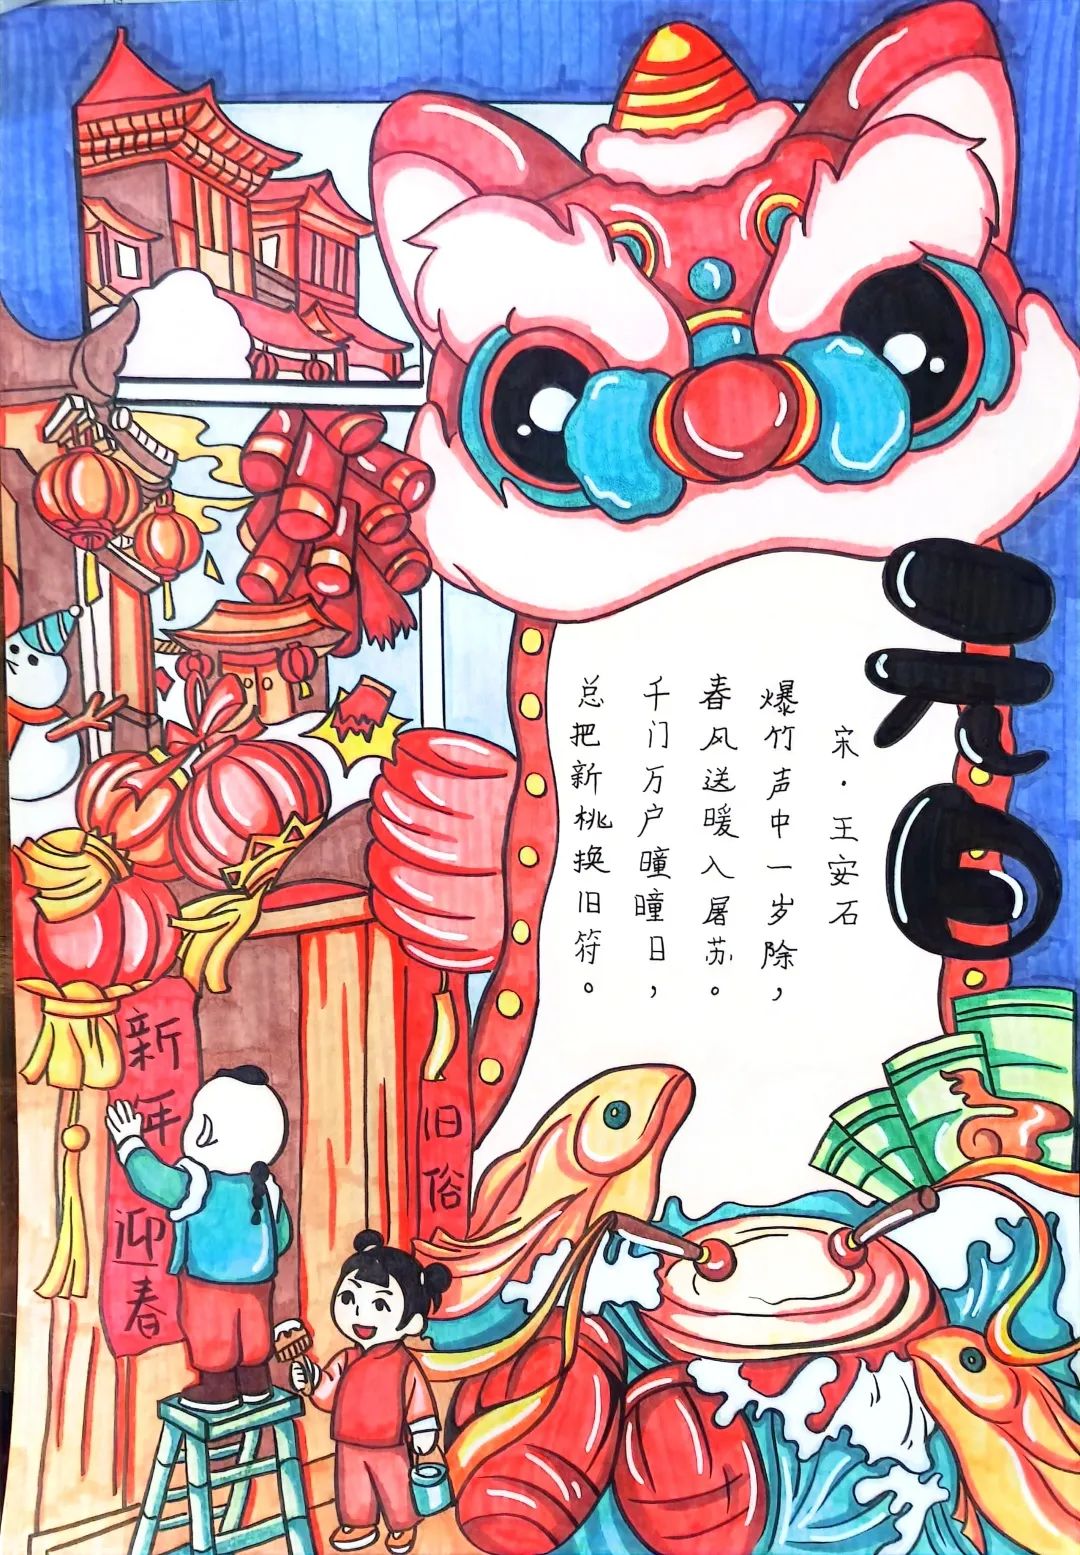 元日
宋·王安石
爆竹声中一岁除，
春风送暖入屠苏。
千门万户瞳瞳日，
总把新桃换旧符。
新年迎春
旧俗